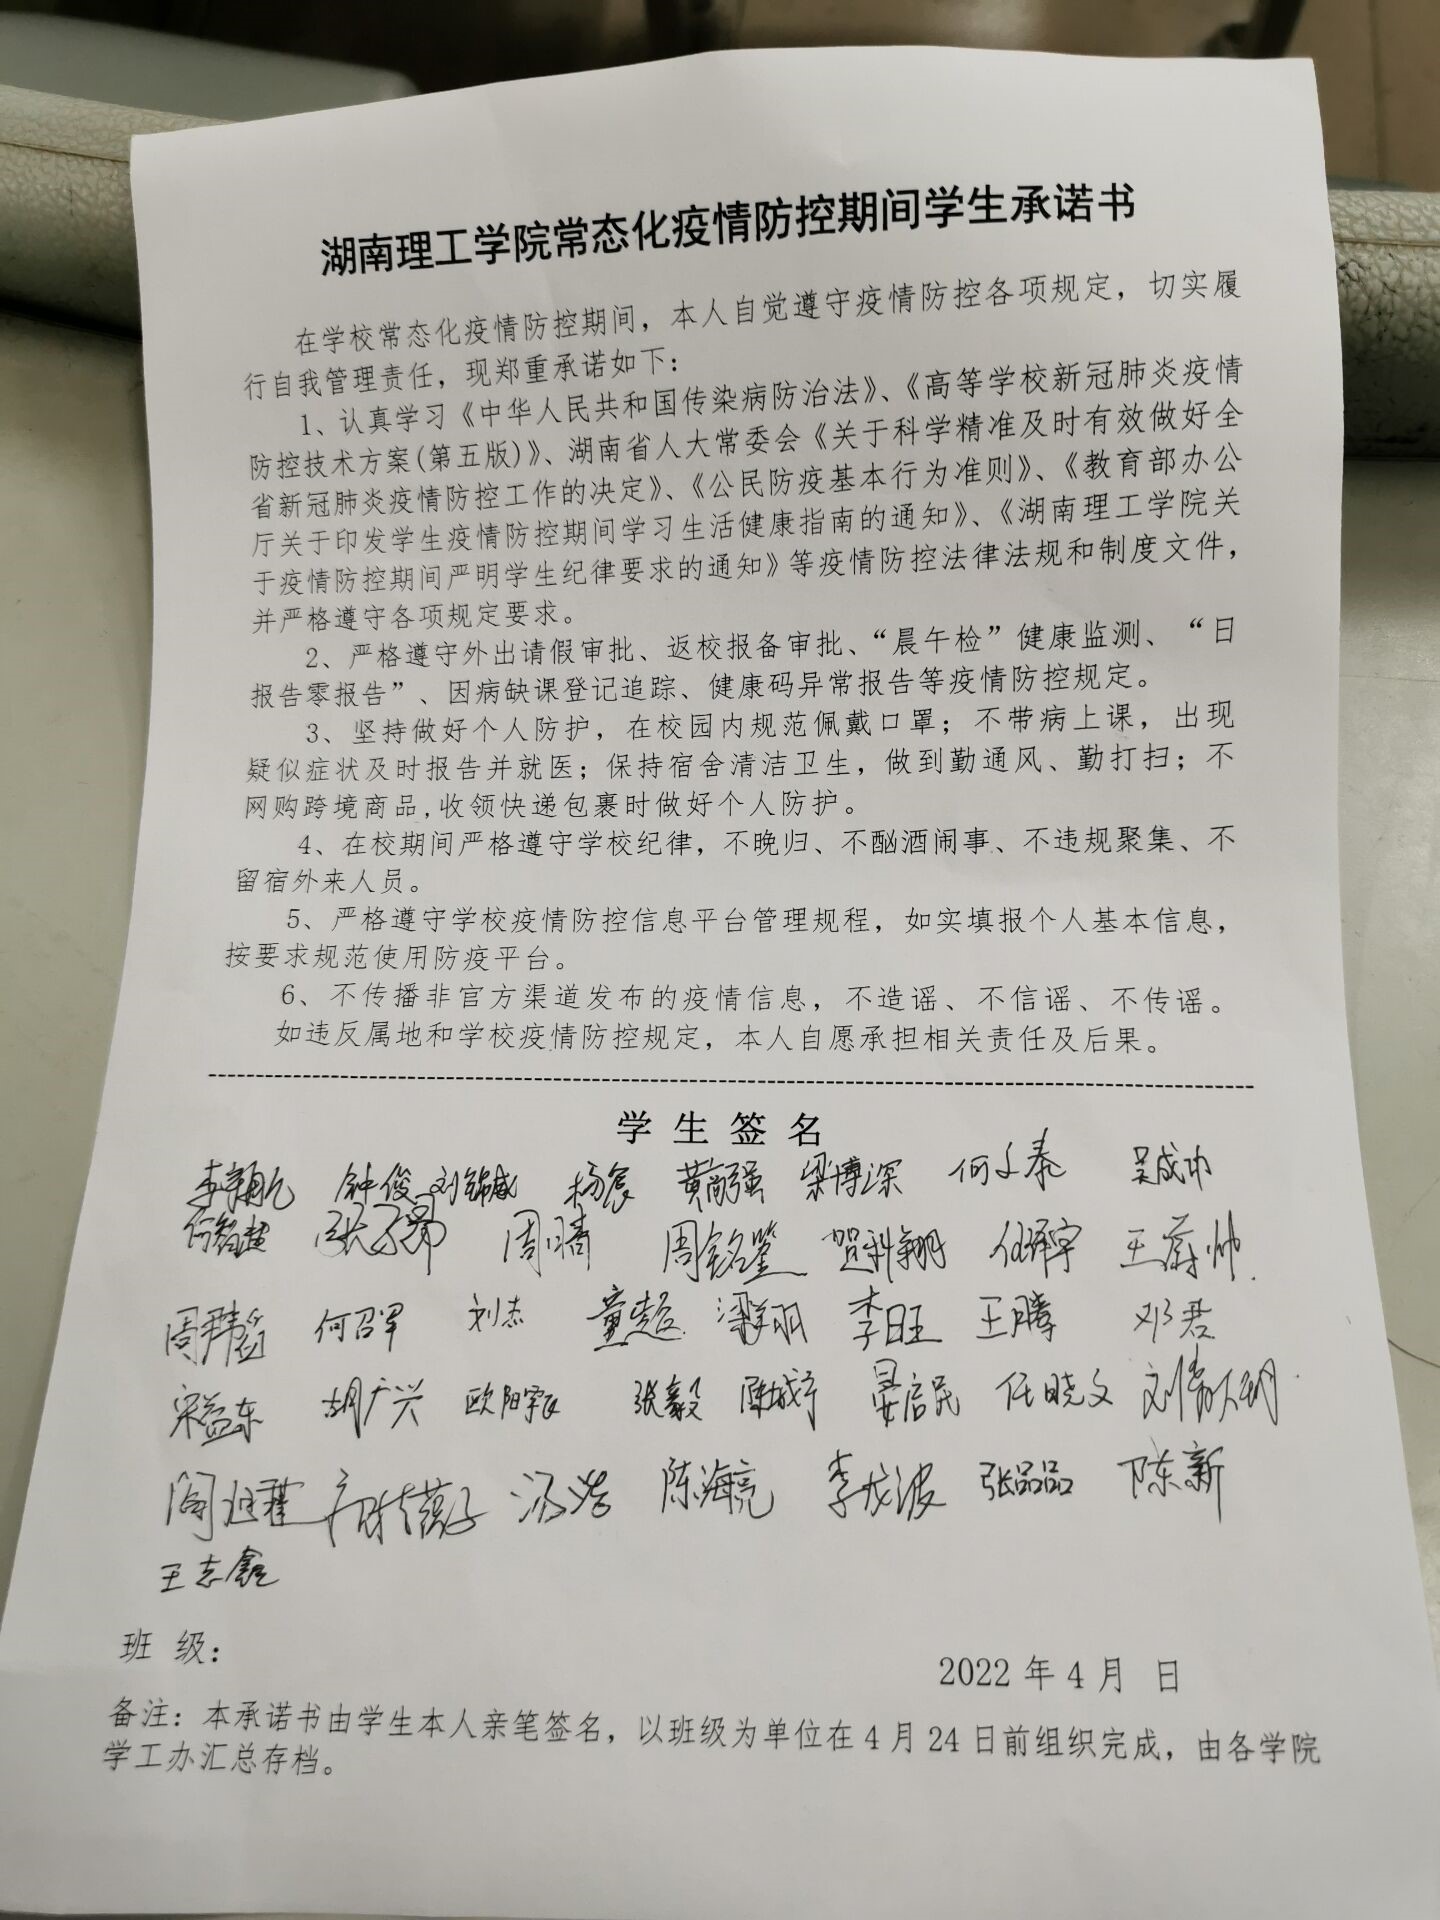 湖南理工学院常态化疫情防控期间学生承诺书
在学校常态化疫情防控期间，本人自觉遵守疫情防控各项规定，切实履
行自我管理责任，现郑重承诺如下：
1、认真学习《中华人民共和国传染病防治法》、《高等学校新冠肺炎疫情
防控技术方案(第五版)》、湖南省人大常委会《关于科学精准及时有效做好全
省新冠肺炎疫情防控工作的决定》、《公民防疫基本行为准则》、《教育部办公
厅关于印发学生疫情防控期间学习生活健康指南的通知》、《湖南理工学院关
于疫情防控期间严明学生纪律要求的通知》等疫情防控法律法规和制度文件，
并严格遵守各项规定要求。
2、严格遵守外出请假审批、返校报备审批、“晨午检”健康监测、“日
报告零报告”、因病缺课登记追踪、健康码异常报告等疫情防控规定。
3、坚持做好个人防护，在校园内规范佩戴口罩；不带病上课，出现
疑似症状及时报告并就医；保持宿舍清洁卫生，做到勤通风、勤打扫；不
网购跨境商品,收领快递包裹时做好个人防护。
4、在校期间严格遵守学校纪律，不晚归、不酗酒闹事、不违规聚集、不
留宿外来人员。
5、严格遵守学校疫情防控信息平台管理规程，如实填报个人基本信息，
按要求规范使用防疫平台。
6、不传播非官方渠道发布的疫情信息，不造谣、不信谣、不传谣。
如违反属地和学校疫情防控规定，本人自愿承担相关责任及后果。
学生签名
钟俊 刘锦威 杨宸 黄高强 梁博深 何文泰 吴成功
何智超 周晴 周铭鉴 贺科翔 任泽宇 王蔚帅
何召军 刘杰 童超 梁翔羽 李旺 王腾 邓君
宋益东 胡广兴 欧阳宇辰 张毅 陈城宇 晏启民 任晓文
汤浩 陈海亮 李成波 张品品 陈新
王志鑫
班 级：
2022 年 4 月 日
备注：本承诺书由学生本人亲笔签名，以班级为单位在 4 月 24 日前组织完成，由各学院
学工办汇总存档。